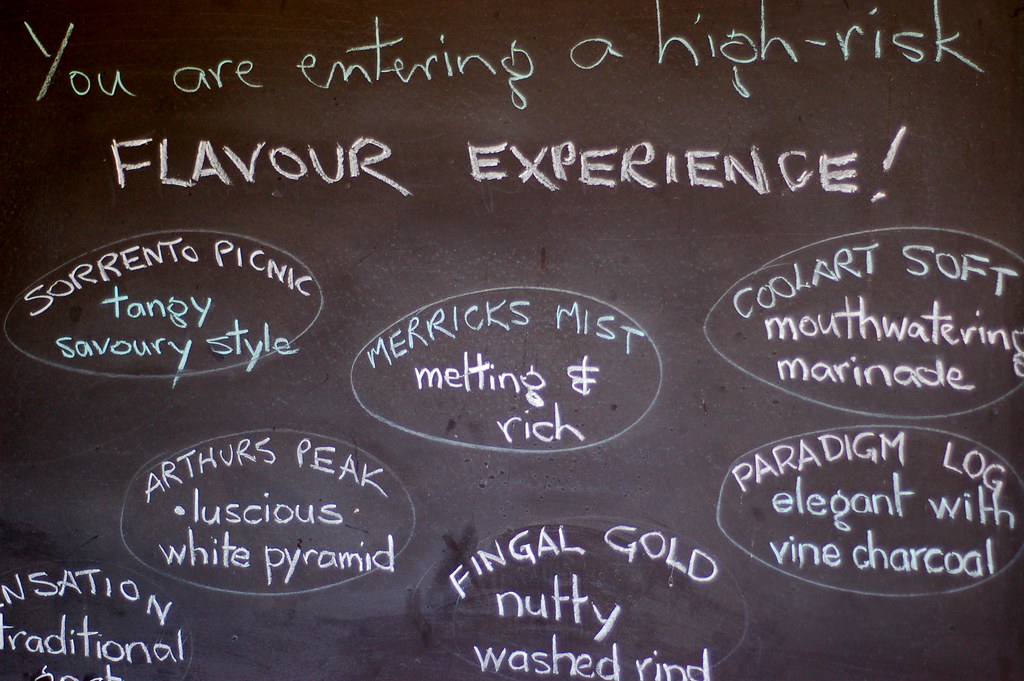 You are entering a high-risk
FLAVOUR EXPERIENCE!
SORRENTO PICNIC
tangy
savoury style
MERRICKS MIST
melting &
rich
COOLART SOFT
mouthwatering
marinade
ARTHURS PEAK
• luscious
white pyramid
PARADIGM LOG
elegant with
vine charcoal
FINGAL GOLD
nutty
washed rind
NSATION
traditional